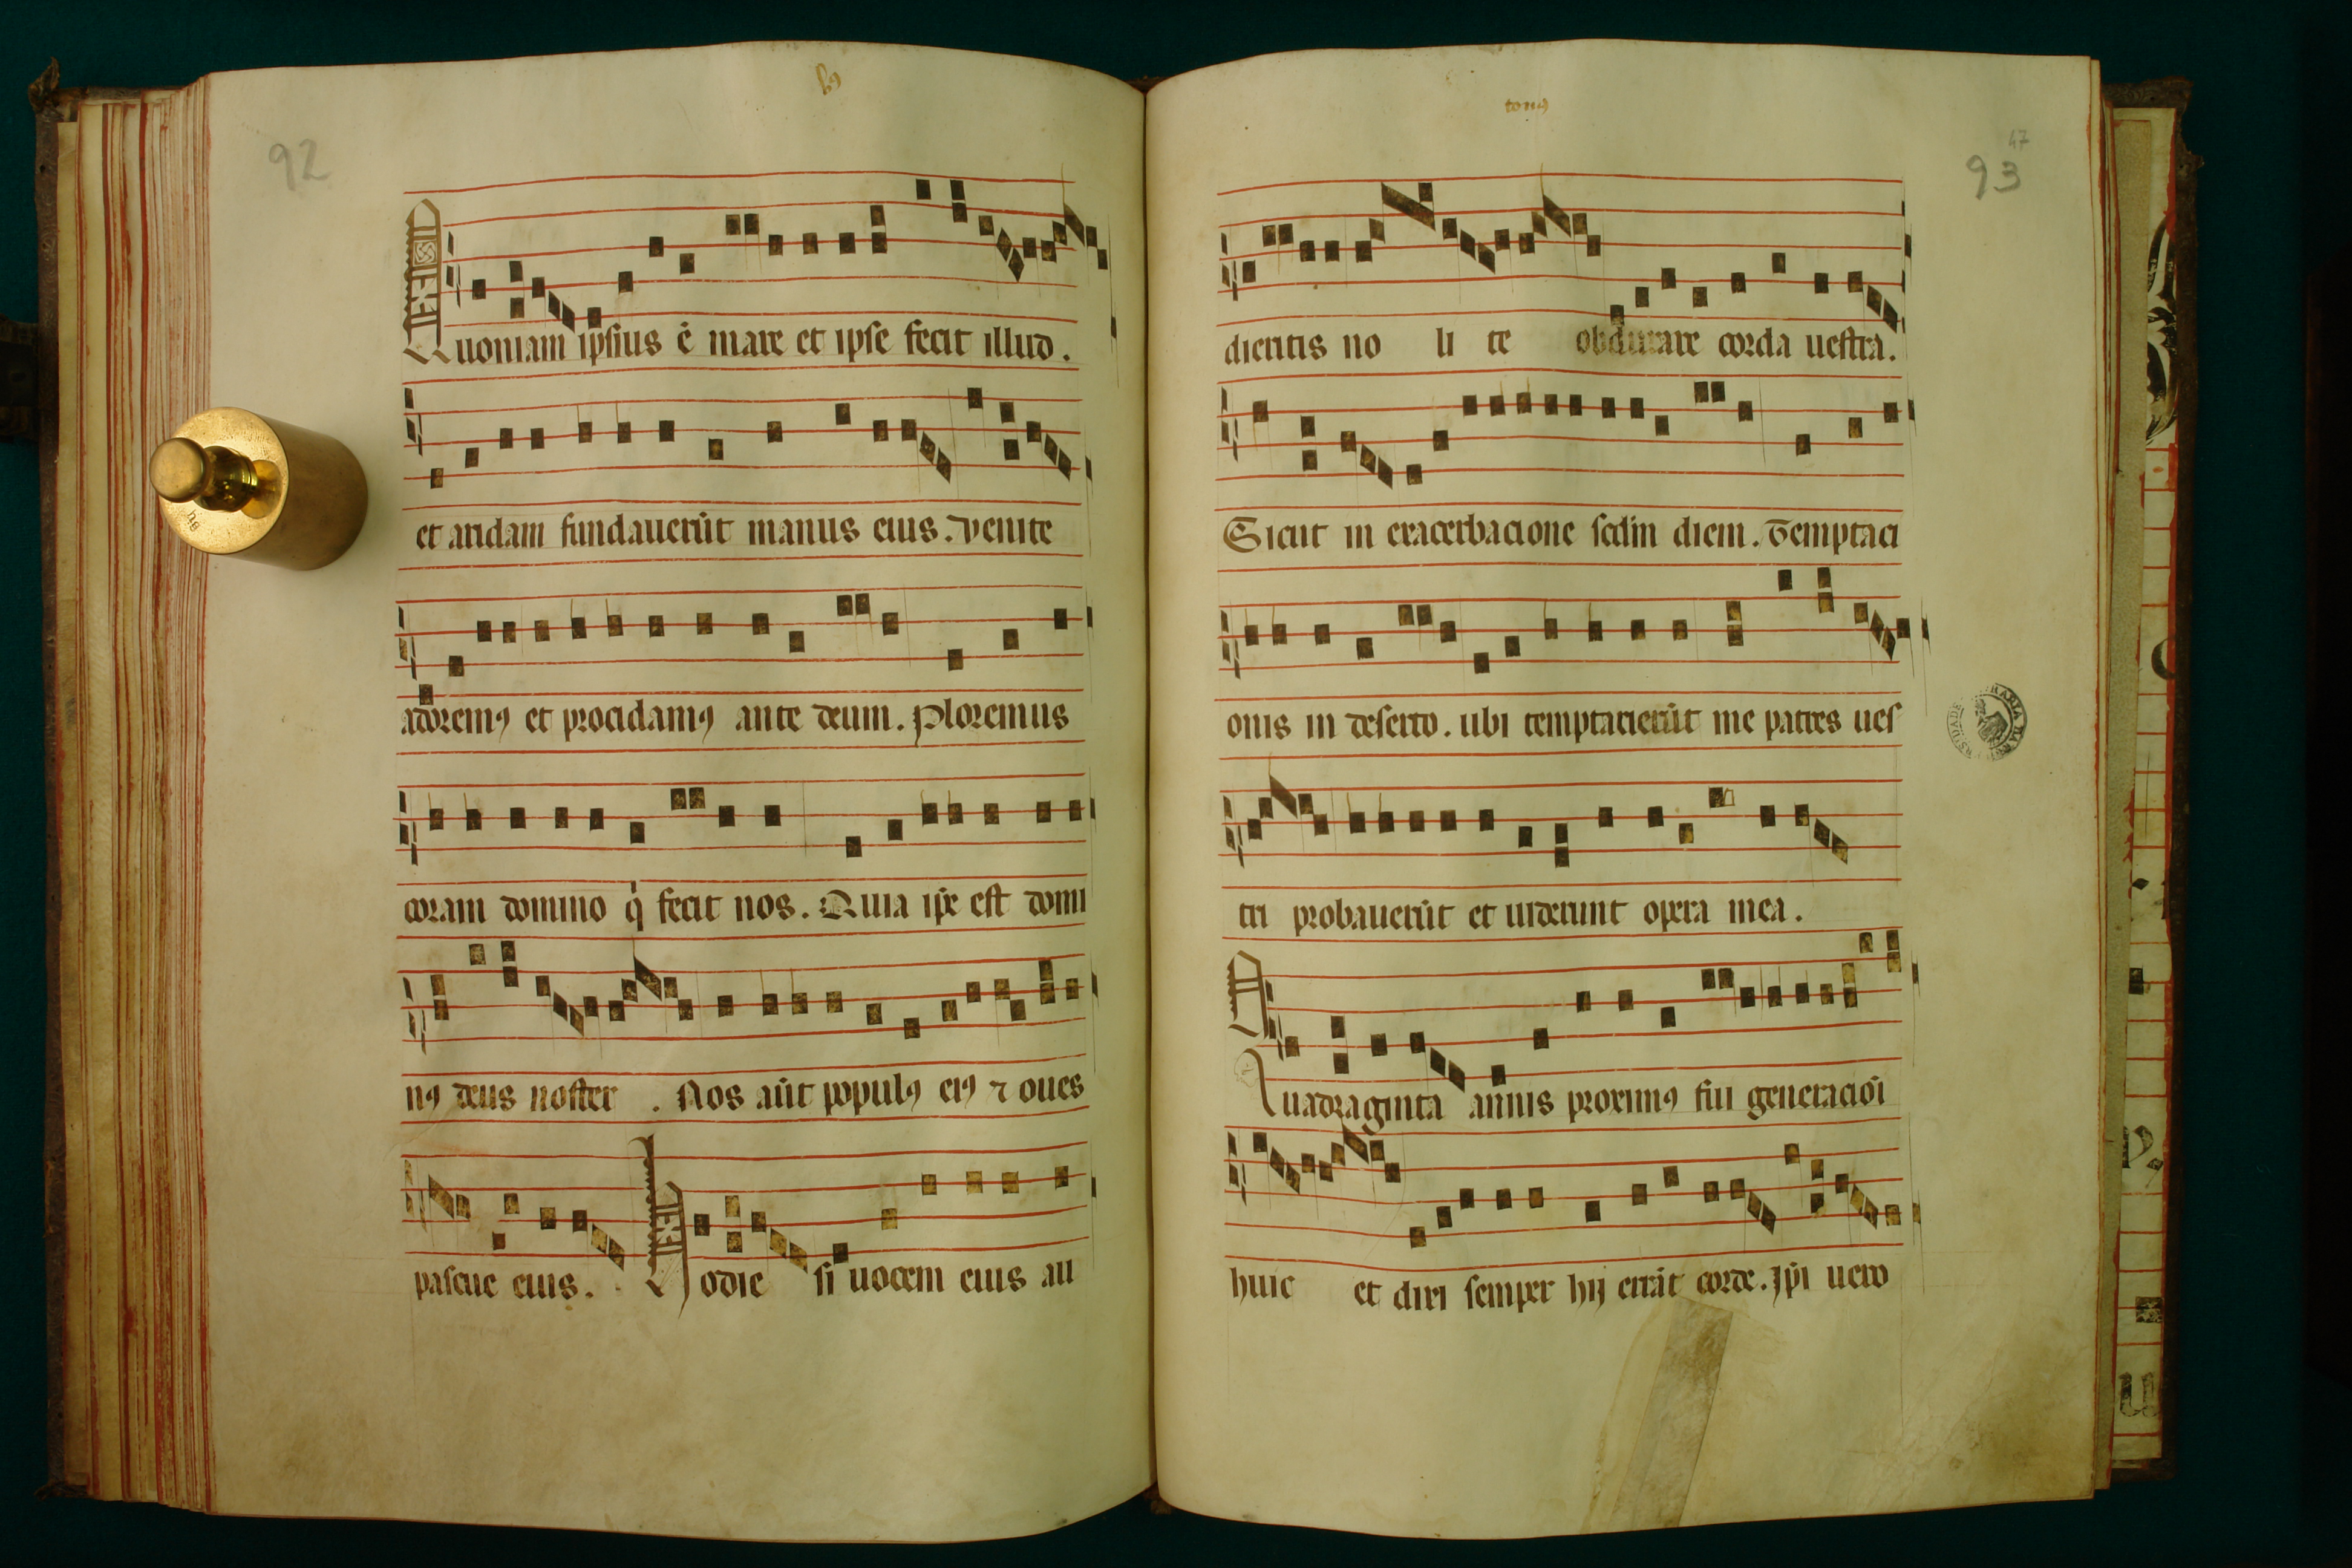 92
Quoniam ipsius ē mare et ipse fecit illud.
et aridam fundauerūt manus eius. Venite
adoremꝯ et procidamꝯ ante deum. Ploremus
coram domino q̇ fecit nos. Quia ip̄e est domi
nꝯ deus noster . Nos aūt populꝯ eiꝯ ⁊ oues
pascue eius. Hodie si uocem eius au
tonꝯ
47
93
dieritis no li te obdurare corda uestra.
Sicut in exacerbacione scd̄m diem. Temptaci
onis in deserto. ubi temptauerūt me patres ues
tri probauerūt et uiderunt opera mea.
Quadraginta annis proximꝯ fui generacioī
huic et dixi semper hij errāt corde. Ip̄i uero